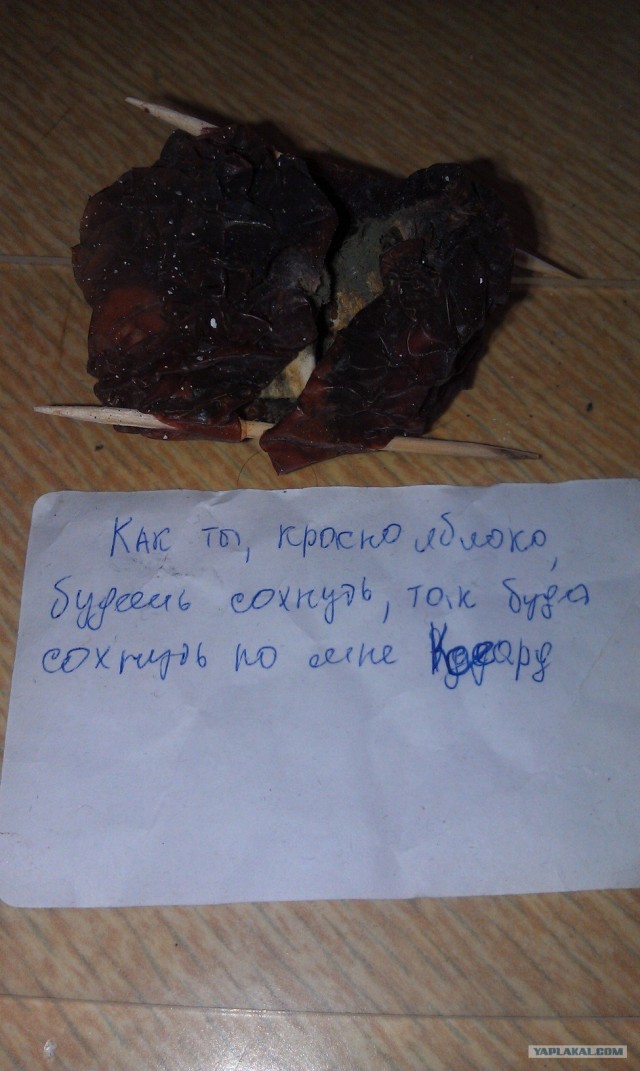 Как ты, красно яблоко,
будешь сохнуть, так буде
сохнуть по мне
YAPLAKAL.COM